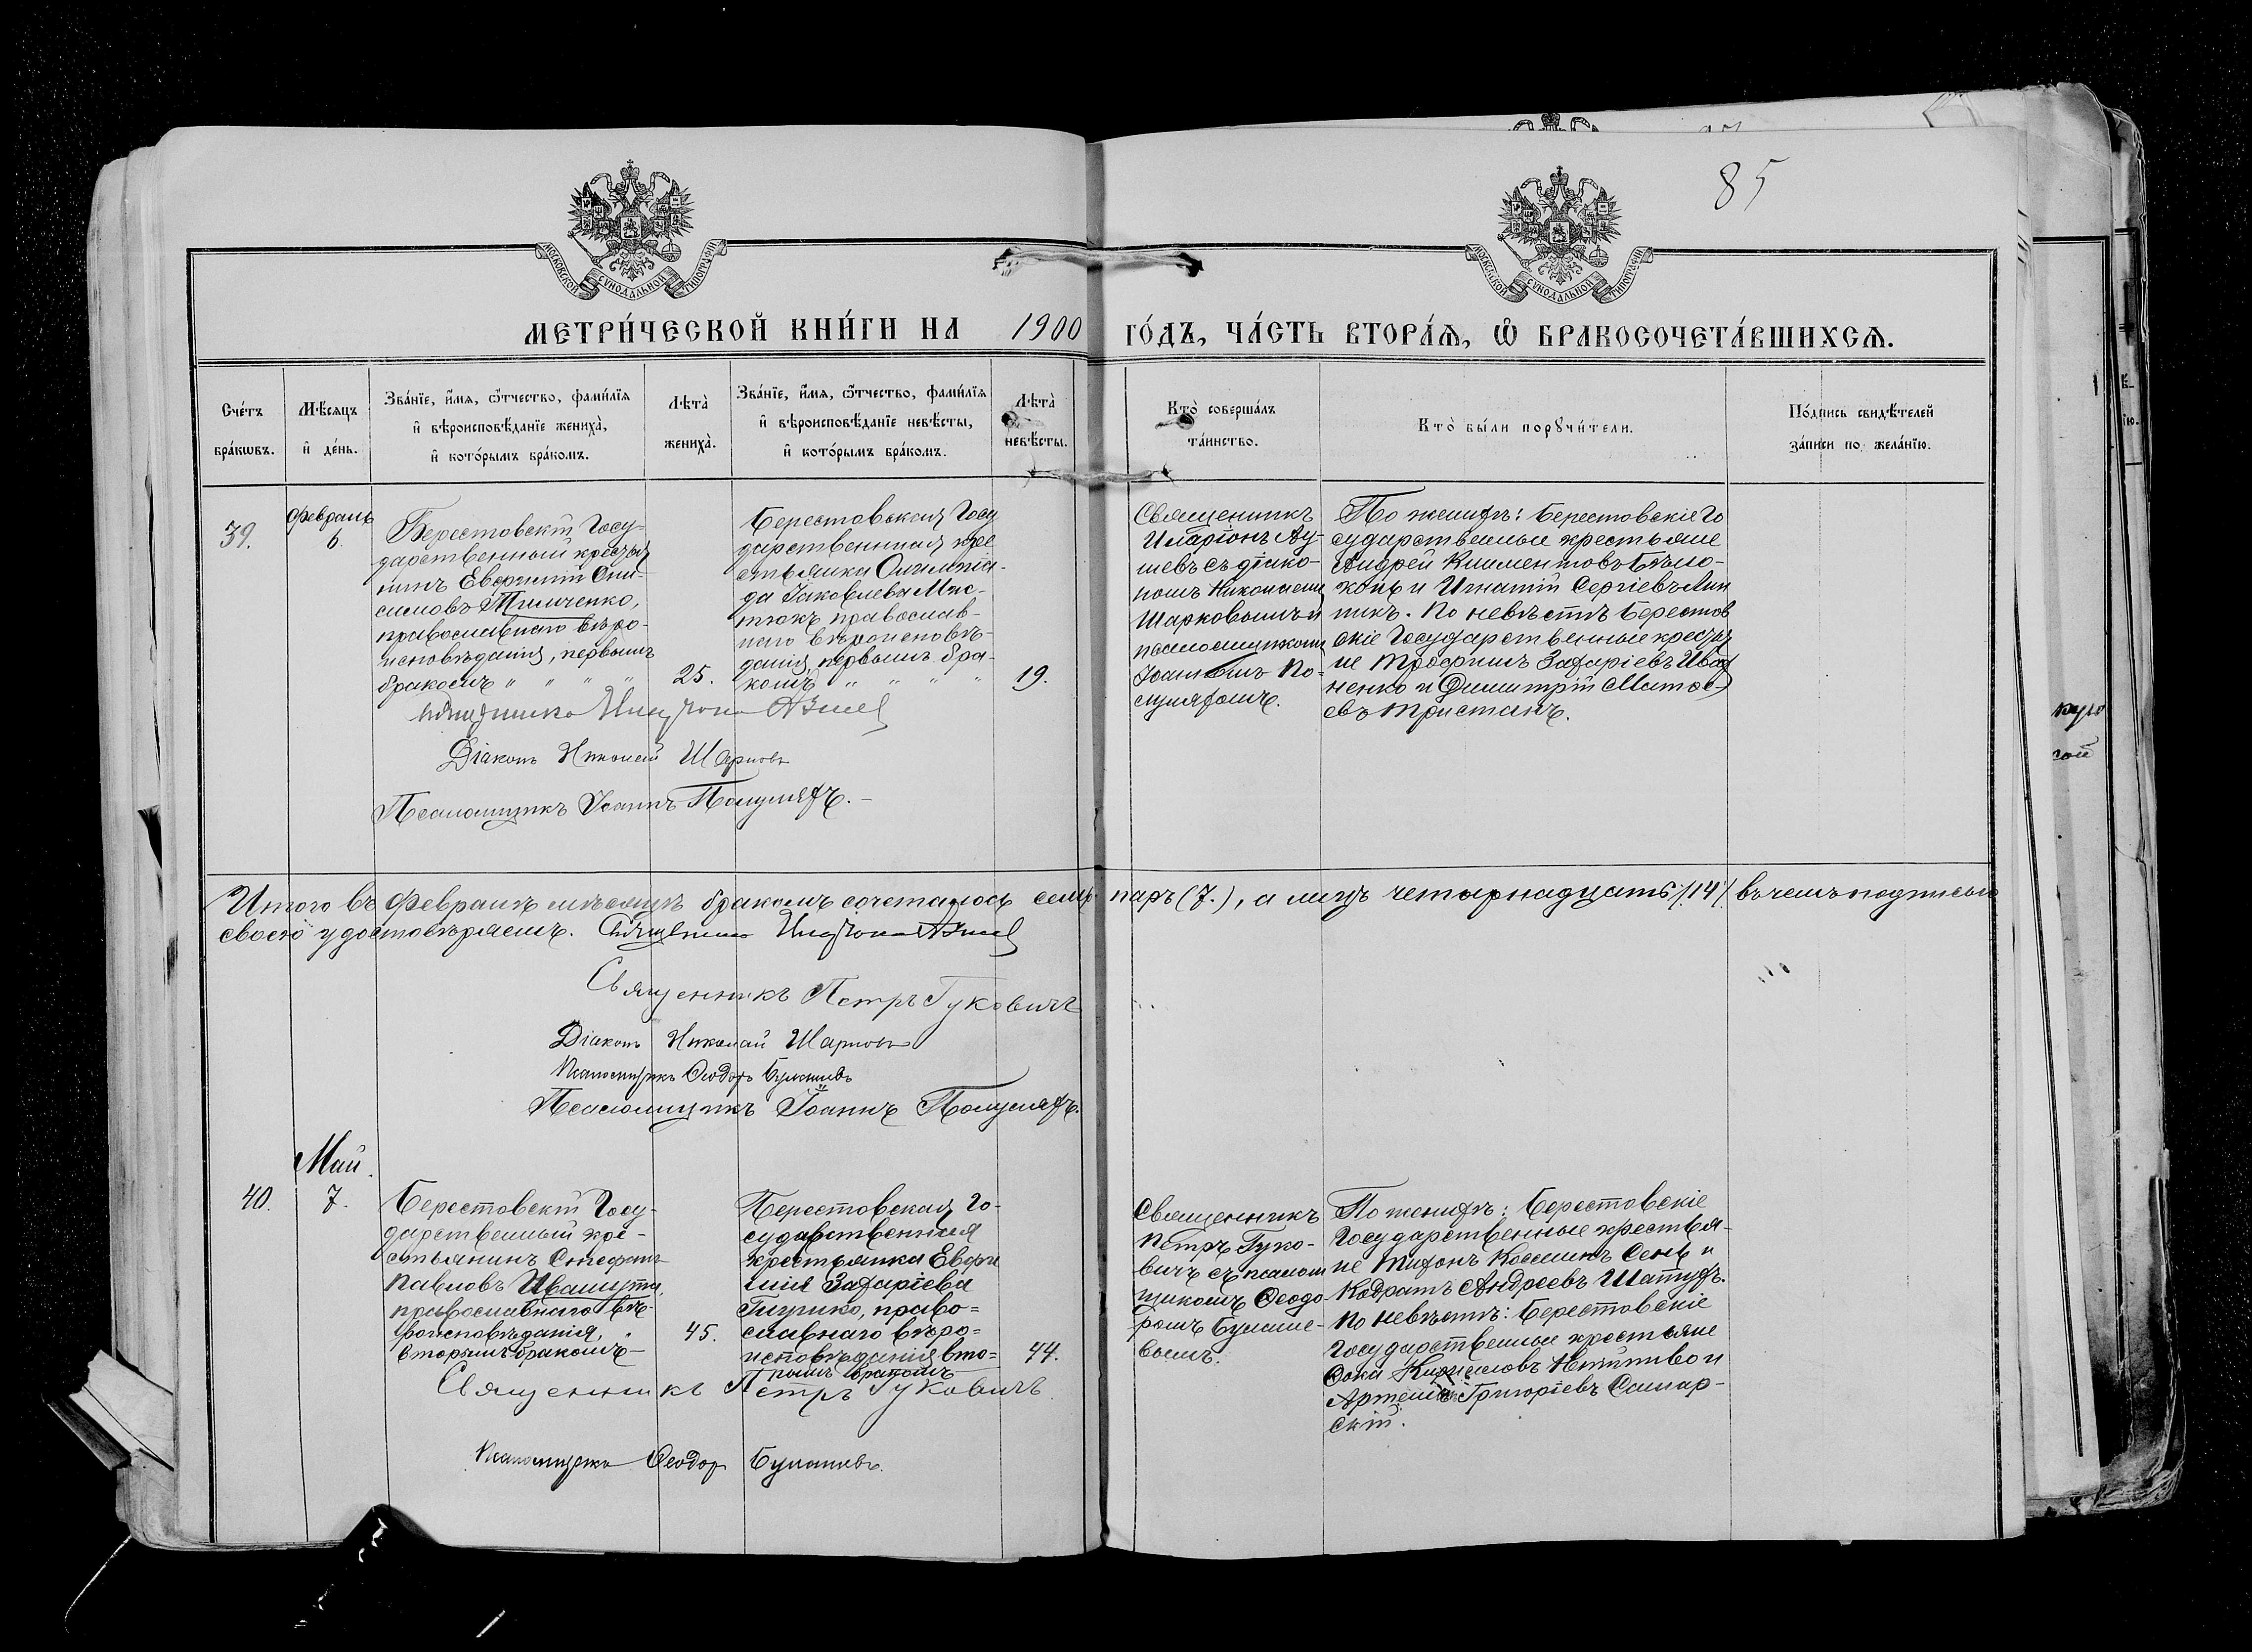 85
МОСКОВСКОЙ СѴНОДАЛЬНОЙ ТИПОГРАФІИ
МОСКОВСКОЙ СѴНОДАЛЬНОЙ ТИПОГРАФІИ
МЕТРИ́ЧЕСКОЙ КНИ́ГИ НА 1900 ГО́ДЪ, ЧА́СТЬ ВТОРА́Ѧ, Ѽ БРАКОСОЧЕТА́ВШИХСѦ.
Сче́тъ
бра́кѡвъ.
Мѣ́сяцъ
и҆ де́нь.
Зва́нїе, и҆́мѧ, ѻ҆́тчество, фамѝлїѧ
и҆ вѣроисповѣ́данїе жениха̀,
и҆ кото́рымъ бра́комъ.
Лѣта̀
жениха̀.
Зва́нїе, и҆́мѧ, ѻ҆́тчество, фамѝлїѧ
и҆ вѣроисповѣ́данїе невѣ́сты,
и҆ кото́рымъ бра́комъ.
Лѣта̀
невѣ́сты.
Кто̀ соверша́лъ
та́инство.
Кто̀ бы́ли порꙋчи́тели.
По́дпись свидѣ́телей
за́писи по жела́нїю.
39.
Февраль
6.
Берестовскій Госу-
дарственный крестья
нинъ Евфимій Они-
симовъ Тимченко,
православнаго вѣро-
исповѣданія, первымъ
бракомъ " " " "
25.
Берестовская Госу
дарственная кре
стьянка Олимпіа-
да Іаковлева
православ-
наго вѣроисповѣ-
данія, первымъ бра-
комъ " " " "
19.
Священникъ
Иларіонъ Ау-
шевъ съ діако-
номъ Николаемъ
Шарковымъ и
псаломщикомъ
Іоанномъ По-
луляхомъ.
По женихѣ: Берестовскіе Го
сударственные крестьяне
Андрей Климентовъ Бѣло-
конь и Игнатій Сергіевъ Лин
никъ. По невѣстѣ Берестов
скіе Государственные крестья
не Трофимъ Захаріевъ Ива
ненко и Димитрій Матѳе-
евъ Тристанъ.
Священникъ Иларіонъ Аушевъ
Діаконъ Николай Шарковъ
Псаломщикъ Іоаннъ Полуляхъ.
Итого въ Февралѣ мѣсяцѣ бракомъ сочеталось семь паръ (7.), а лицъ четырнадцать /14/ въ чемъ подписью
своею удостовѣряемъ. Священникъ Иларіонъ Аушевъ
Священникъ Петръ Гуковичъ
Діаконъ Николай Шарковъ
Псаломщикъ Ѳеодоръ Булашевъ
Псаломщикъ Іоаннъ Полуляхъ.
Май.
40.
7.
Берестовскій Госу-
дарственный кре-
стьянинъ Стефанъ
Павловъ Ивашута,
православнаго вѣ-
роисповѣданія, "
вторымъ бракомъ
45.
Берестовская Го-
сударственная
крестьянка Евфи
мія Захаріева
православ-
славнаго вѣро-
исповѣданія вто-
рымъ бракомъ
44.
Священникъ
Петръ Гуко-
вичъ съ псалом
щикомъ Ѳеодо-
ромъ Булаше-
вымъ.
По женихѣ: Берестовскіе
Государственные крестья-
не Тихонъ Косминъ Сенъ и
Кодратъ Андреевъ Шатухъ.
По невѣстѣ: Берестовскіе
Государственные крестьяне
Ѳока Кирилловъ и
Артемій Григоріевъ Самар-
скій.
Священникъ Петръ Гуковичъ.
Псаломщикъ Ѳеодоръ Булашевъ.